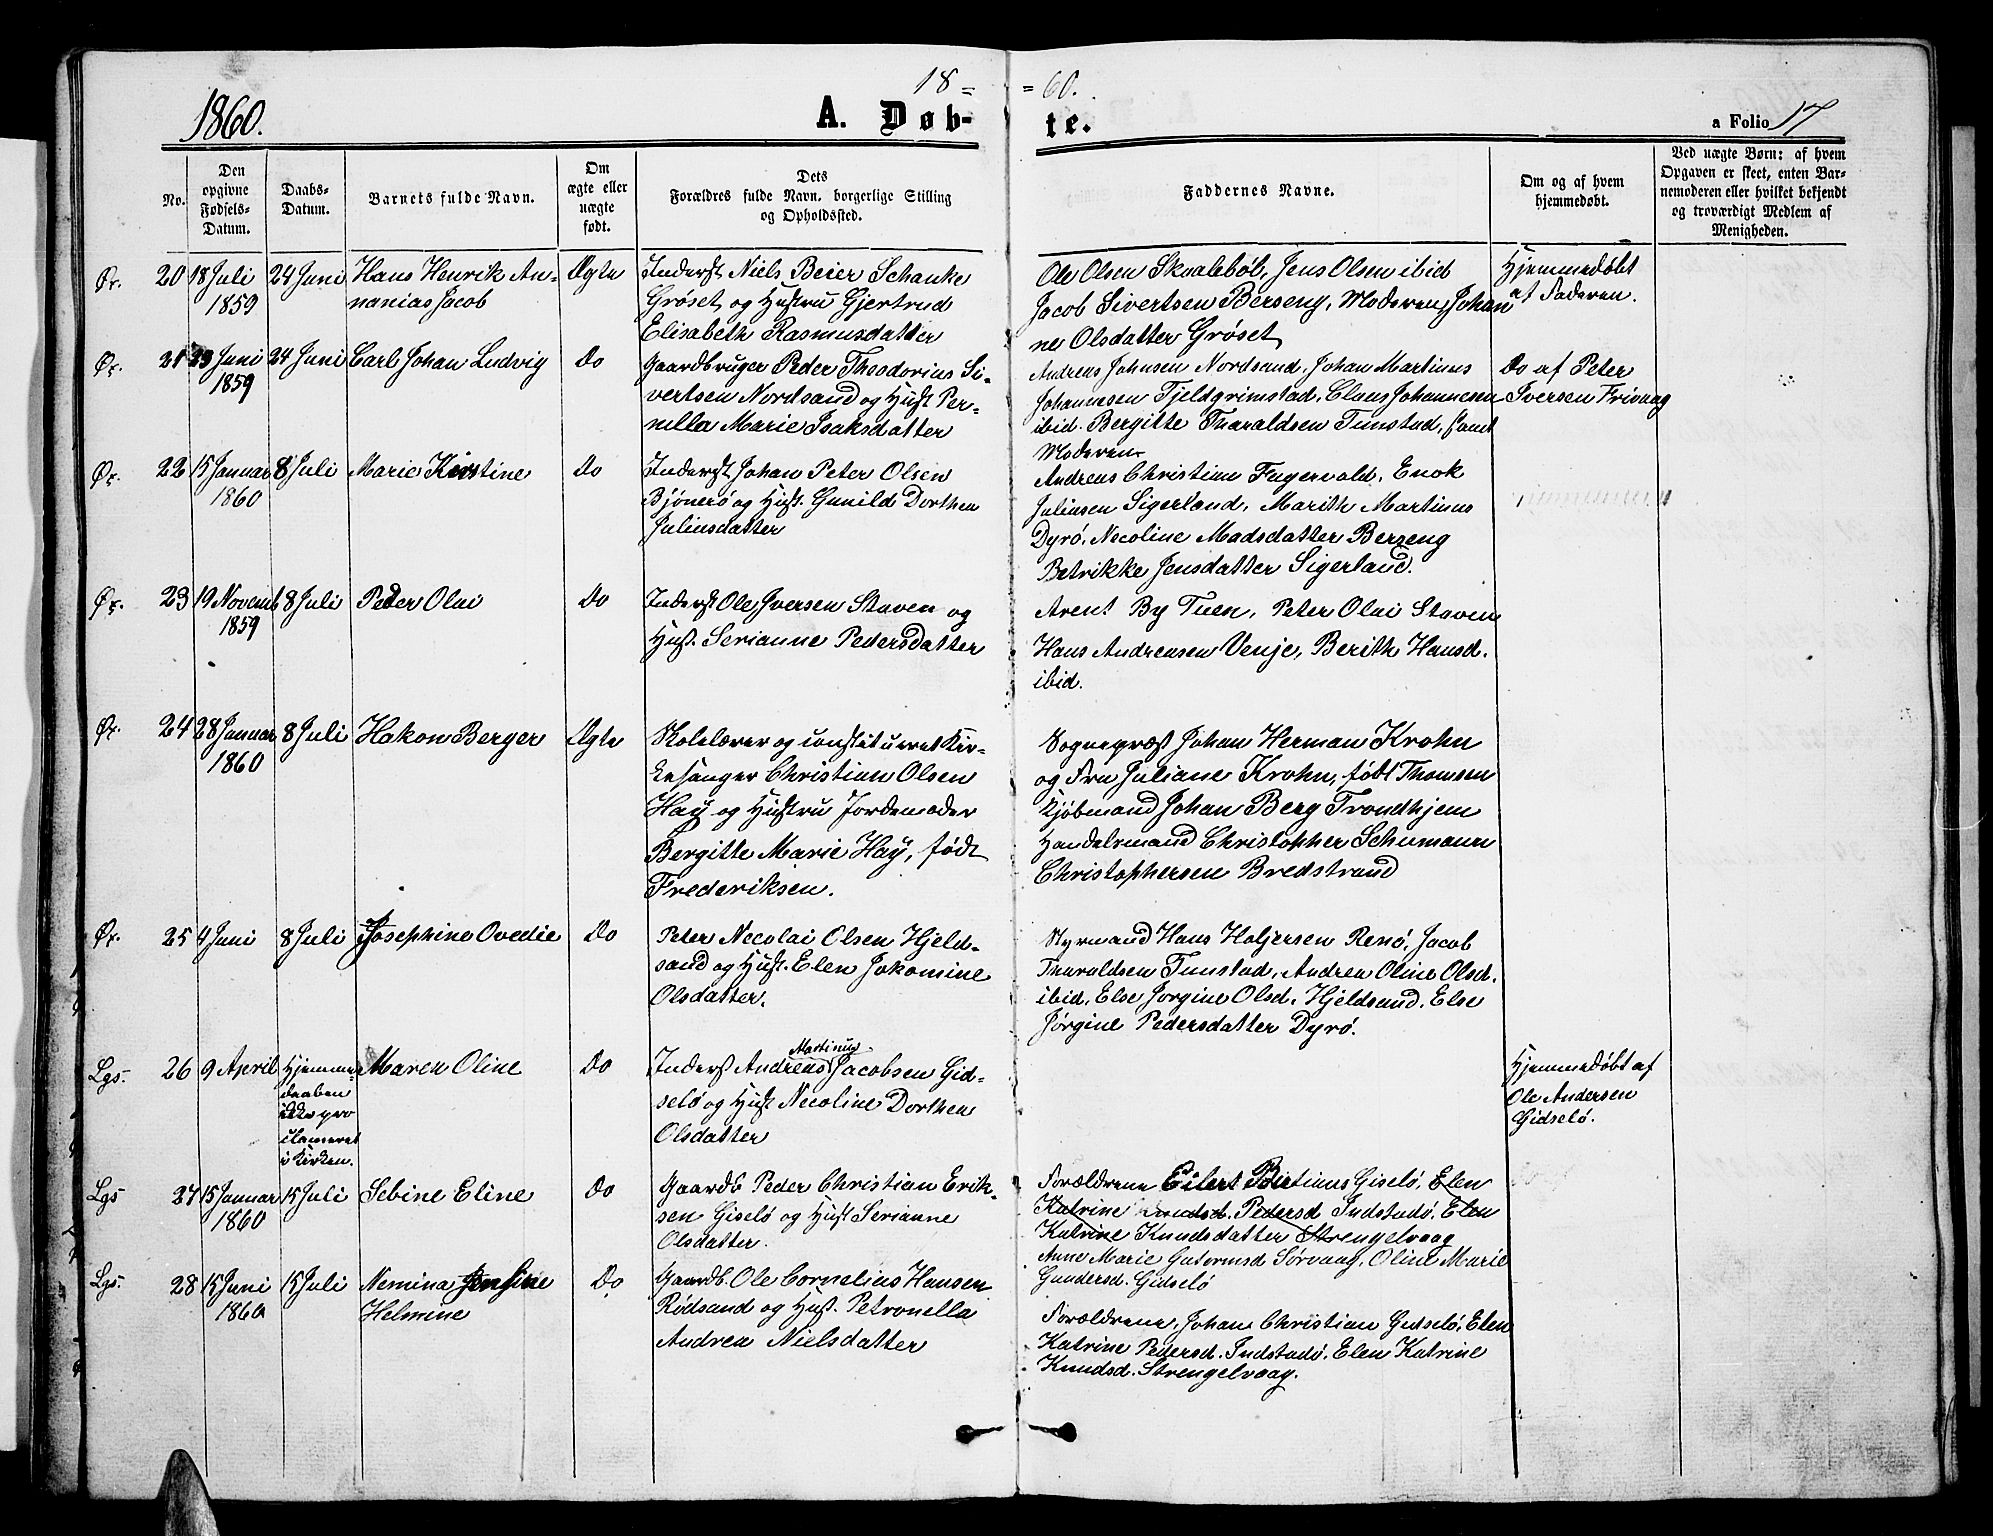 18 = = 60.
1860. A. Døb- te. a Folio 17
No.
Den opgivne Fødsels-Datum.
Daabs-Datum.
Barnets fulde Navn.
Om ægte eller uægte født.
Dets Forældres fulde Navn, borgerlige Stilling og Opholdssted.
Faddernes Navne.
Om og af hvem hjemmedøbt.
Ved uægte Børn: af hvem Opgaven er skeet, enten Barnemoderen eller hvilket bekjendt og troværdigt Medlem af Menigheden.
Øx. 20 18 Juli 24 Juni Hans Henrik An- Ægte Inderst Niels Beier Schanke
1859 nanias Jacob Grøset og Hustru Gjertrud
Elisabeth Rasmusdatter
Ole Olsen Skvalebøl, Jens Olsen ibid
Jacob Sivertsen Berseng, Moderen, Johan
ne Olsdatter Grøset
Hjemmedøbt
af Faderen.
Øx. 21 23 Juni 24 Juni Carl Johan Ludvig Do Gaardbruger Peder Theodorius Si-
1859 vertsen Nordsand og Hust Per-
nilla Marie Isaksdatter
Andreas Johnsen Nordsand, Johan Martinus
Johannesen Fjeldgrimstad, Claus Johannesen
ibid. Bergitte Tharaldsen Tunstad, samt
Moderen
Do af Peter
Iversen Frivaag
Øx. 22 15 Januar 8 Juli Marie Kirstine Do Inderst Johan Peter Olsen
1860 Bjønerø og Hust. Gunild Dorthea
Juliusdatter
Andreas Christian Fagervold, Enok
Juliusen Sigerland, Marith Martinus
Dyrø, Necoline Madsdatter Berseng
Betrikke Jensdatter Sigerland.
Øx. 23 19 Novemb 8 Juli Peder Olai Do Inderst Ole Iversen Staven og
1859 Hust. Serianne Pedersdatter
Arent By Tuen, Peter Olai Staven
Hans Andreasen Venje, Berith Hansd.
ibid.
Øx. 24 28 Januar 8 Juli Hakon Berger Ægte Skolelærer og constitueret Kir-
1860 kesanger Christian Olsen
Haÿ og Hustru Jordemoder
Bergitte Marie Haÿ, født
Frederiksen.
Sognepræst Johan Herman Krohn
og Fru Juliane Krohn, født Thomsen
Kjøbmand Johan Berg Trondhjem
Handelsmand Christopher Schumann
Christophersen Bredstrand
Øx. 25 4 Juni 8 Juli Josephine Ovedie Do Peter Necolai Olsen Hjeld-
sand og Hust. Elen Jokomine
Olsdatter.
Styrmand Hans Holjersen Renø, Jacob
Tharaldsen Tunstad, Andrea Oline Olsd.
ibid, Else Jørgine Olsd. Hjeldsand, Else
Jørgine Pedersdatter Dyrø.
Lgs. 26 9 April Hjemme- Maren Oline Do Inderst Andreas Martinus Jacobsen Gid-
daaben selø og Hust Necoline Dorthea
ikke pro Olsdatter
clameret
i Kirken.
Hjemmedøbt af
Ole Andersen
Gidselø.
Lgs 27 15 Januar 15 Juli Sebine Eline Do Gaardb Peder Christian Erik-
1860 sen Giselø og Hust Serianne
Olsdatter.
Forældrene Eilert Giselø, Elen
Katrine Knudsd. Pedersd Indstadø, Elen
Katrine Knudsdatter Strengelvaag
Anne Marie Gutormsd Sørvaag, Oline Marie
Gundersd. Gidselø
Lgs. 28 15 Juni 15 Juli Nemina Jensine Do Gaardb. Ole Cornelius Hansen
1860 Helmine Rødsand og Hust. Petronella
Andrea Nielsdatter
Forældrene, Johan Christian Gidselø, Elen
Katrine Pedersd. Indstadø, Elen Katrine
Knudsd. Strengelvaag.